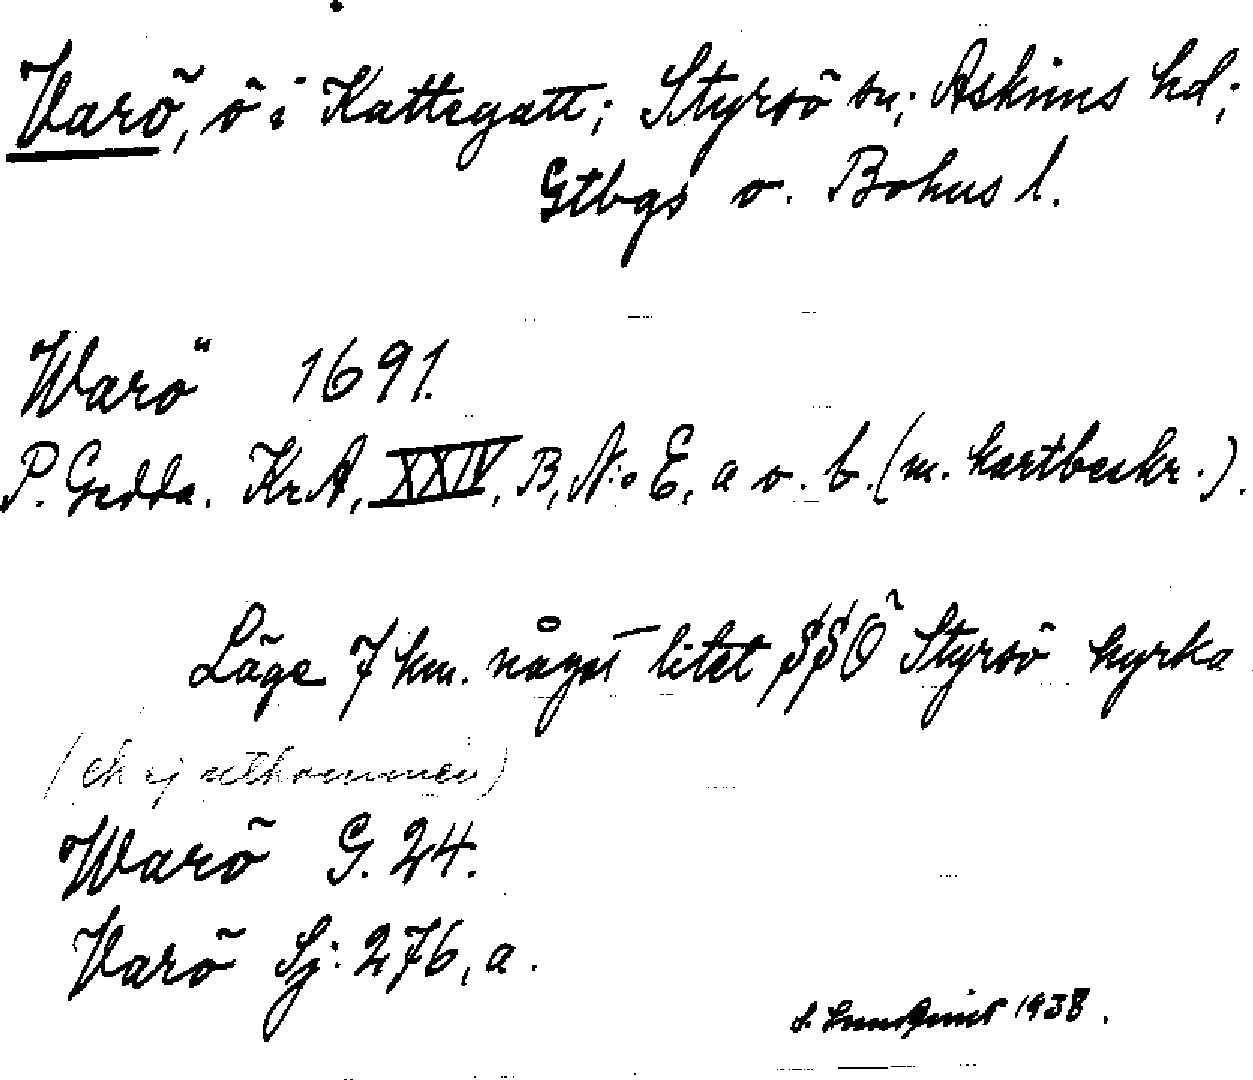 Varö, ö i Kattegatt; Styrsö sn; Askims hd;
Gtbgs o. Bohus l.
Warö 1691.
P. Gedda. Kr.A, XXIV, B, N:o E, a o. b. (m. kartbeskr.).
Läge 7 km. något litet SSÖ Styrsö kyrka
(ek ej utkommen)
Warö G. 24.
Varö Sj: 276, a.
S. Lundquist 1938.